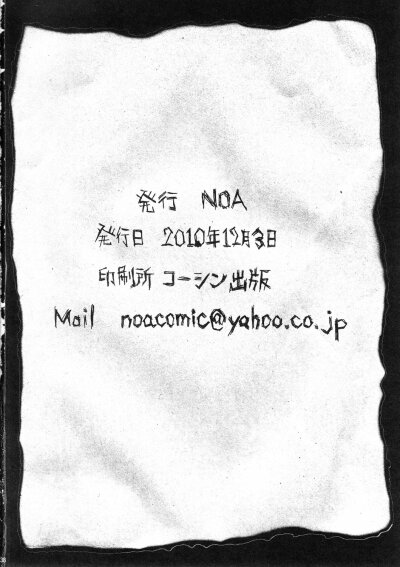 発行 NOA
発行日 2010年12月3日
印刷所 コーシン出版
Mail noacomic@yahoo.co.jp
38